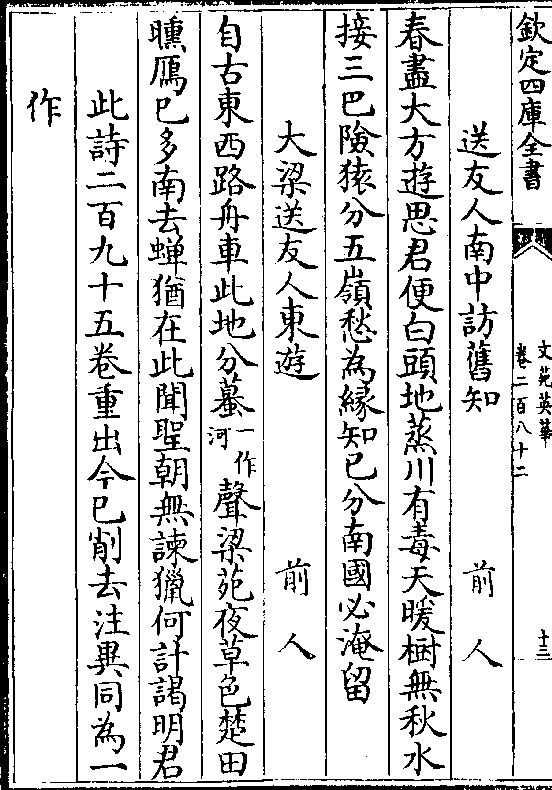 欽定四庫全書
文苑英華
卷二百八十二
十三
送友人南中訪舊知
前人
春盡大方遊思君便白頭地蒸川有毒天暖樹無秋水
接三巴險猿分五嶺愁為縁知已分南國必淹留
大梁送友人東遊
前人
自古東西路舟車此地分蔡一作河聲梁苑夜草色楚田
曛鴈已多南去蟬猶在此聞聖朝無諫獵何計謁明君
此詩二百九十五卷重出今已削去注異同為一
作